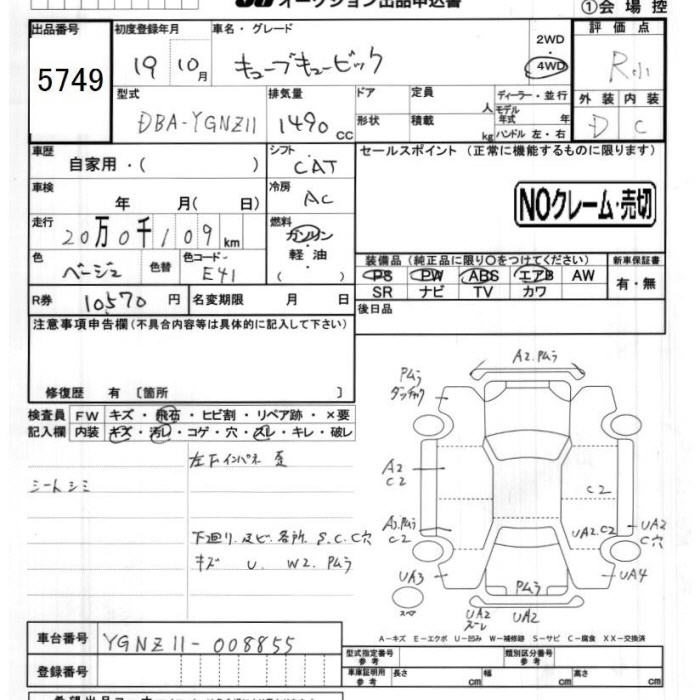 オークション出品申込書
①会場控
出品番号
5749
初度登録年月
19 10月
車名・グレード
キューブキュービック
2WD
・
4WD
評価点
外装 内装
D C
型式
DBA-YGNZ11
排気量
1490 CC
ドア
形状
定員 人
積載 kg
ディーラー・並行
モデル年式 年
ハンドル 左・右
車歴
自家用・( )
シフト
CAT
セールスポイント (正常に機能するものに限ります)
NOクレーム・売切
車検
年 月( 日)
冷房
AC
走行
20万0千109km
燃料
ガソリン
・
軽油
( )
色
ベージュ
色替
色コード
E41
装備品(純正品に限り○をつけてください)
PS PW ABS エアB AW
SR ナビ TV カワ
新車保証書
有・無
R券 10570円
名変期限 月 日
後日品
注意事項申告欄(不具合内容等は具体的に記入して下さい)
修復歴 有〔箇所 〕
検査員
記入欄
FW キズ・飛石・ヒビ割・リペア跡・×要
内装 キズ・汚レ・コゲ・穴・スレ・キレ・破レ
左下インパネ 歪
シートシミ
下廻リ.足ビ.各所 S.C.C穴
キズ U. W2. Pムラ
A2.Pムラ
Pムラ
A2
C2
C2
C2
UA2.C2
UA2
C穴
UA3
UA4
Pムラ
UA2
UA2
スペア
A－キズ E－エクボ U－凹み W－補修跡 S－サビ C－腐食 XX－交換済
車台番号
YGNZ11-008855
登録番号
型式指定番号
参考
類別区分番号
参考
車庫証明用
参考
長さ cm
幅 cm
高さ cm